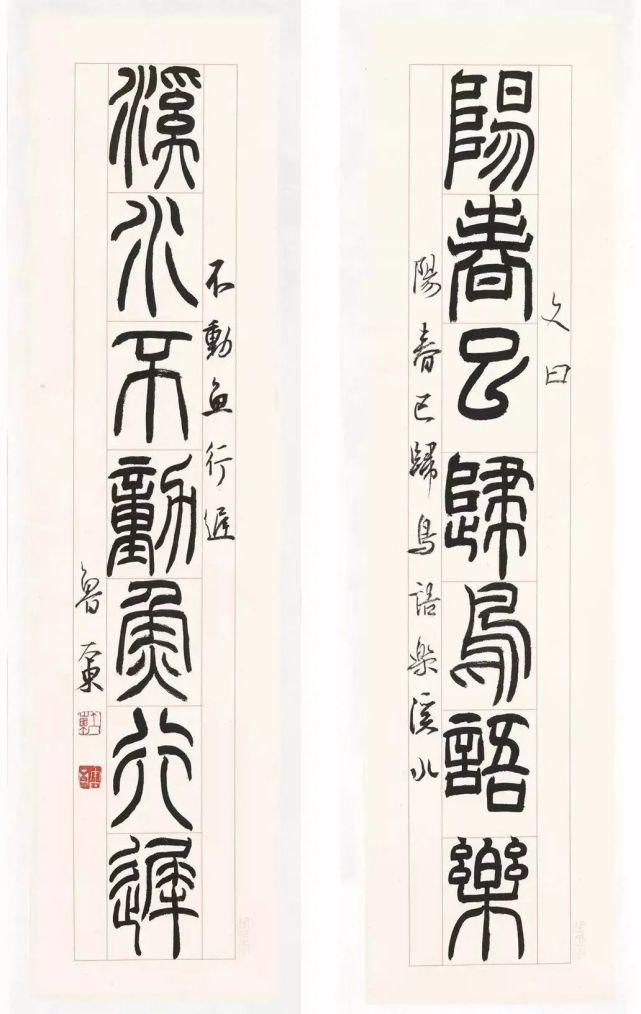 文曰
陽春已歸鳥語樂
陽春已歸鳥語樂溪水
不動魚行遲
溪水不動魚行遲
魯大東